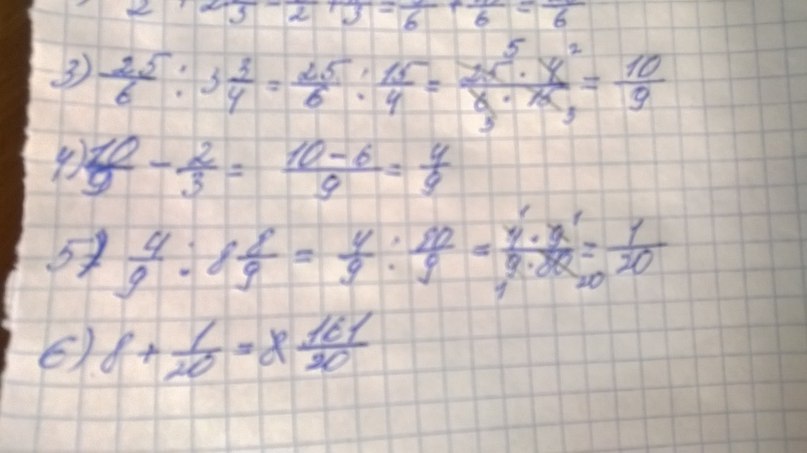 3) 25/6 : 3 3/4 = 25/6 : 15/4 = 25 · 4 / 6 · 15 5 2 3 3 = 10/9
4) 10/9 - 2/3 = 10 - 6 / 9 = 4/9
5) 4/9 : 8 8/9 = 4/9 : 80/9 = 4 · 9 / 9 · 80 1 1 1 20 = 1/20
6) 8 + 1/20 = 8 161/20